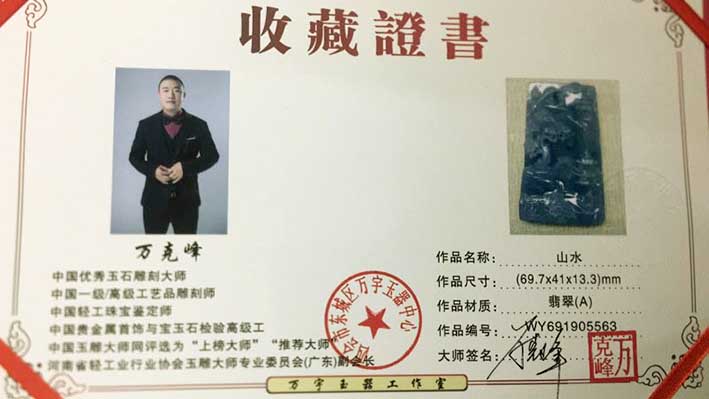 收藏證書
万克峰
中国优秀玉石雕刻大师
中国一级/高级工艺品雕刻师
中国轻工珠宝鉴定师
中国贵金属首饰与宝玉石检验高级工
中国玉雕大师网评选为“上榜大师”“推荐大师”
河南省轻工业行业协会玉雕大师专业委员会(广东)副会长
会市东城区万宇玉器中心
作品名称: 山水
作品尺寸: (69.7x41x13.3)mm
作品材质: 翡翠(A)
作品编号: WY691905563
大师签名: 万克峰
万克峰
万宇玉器工作室